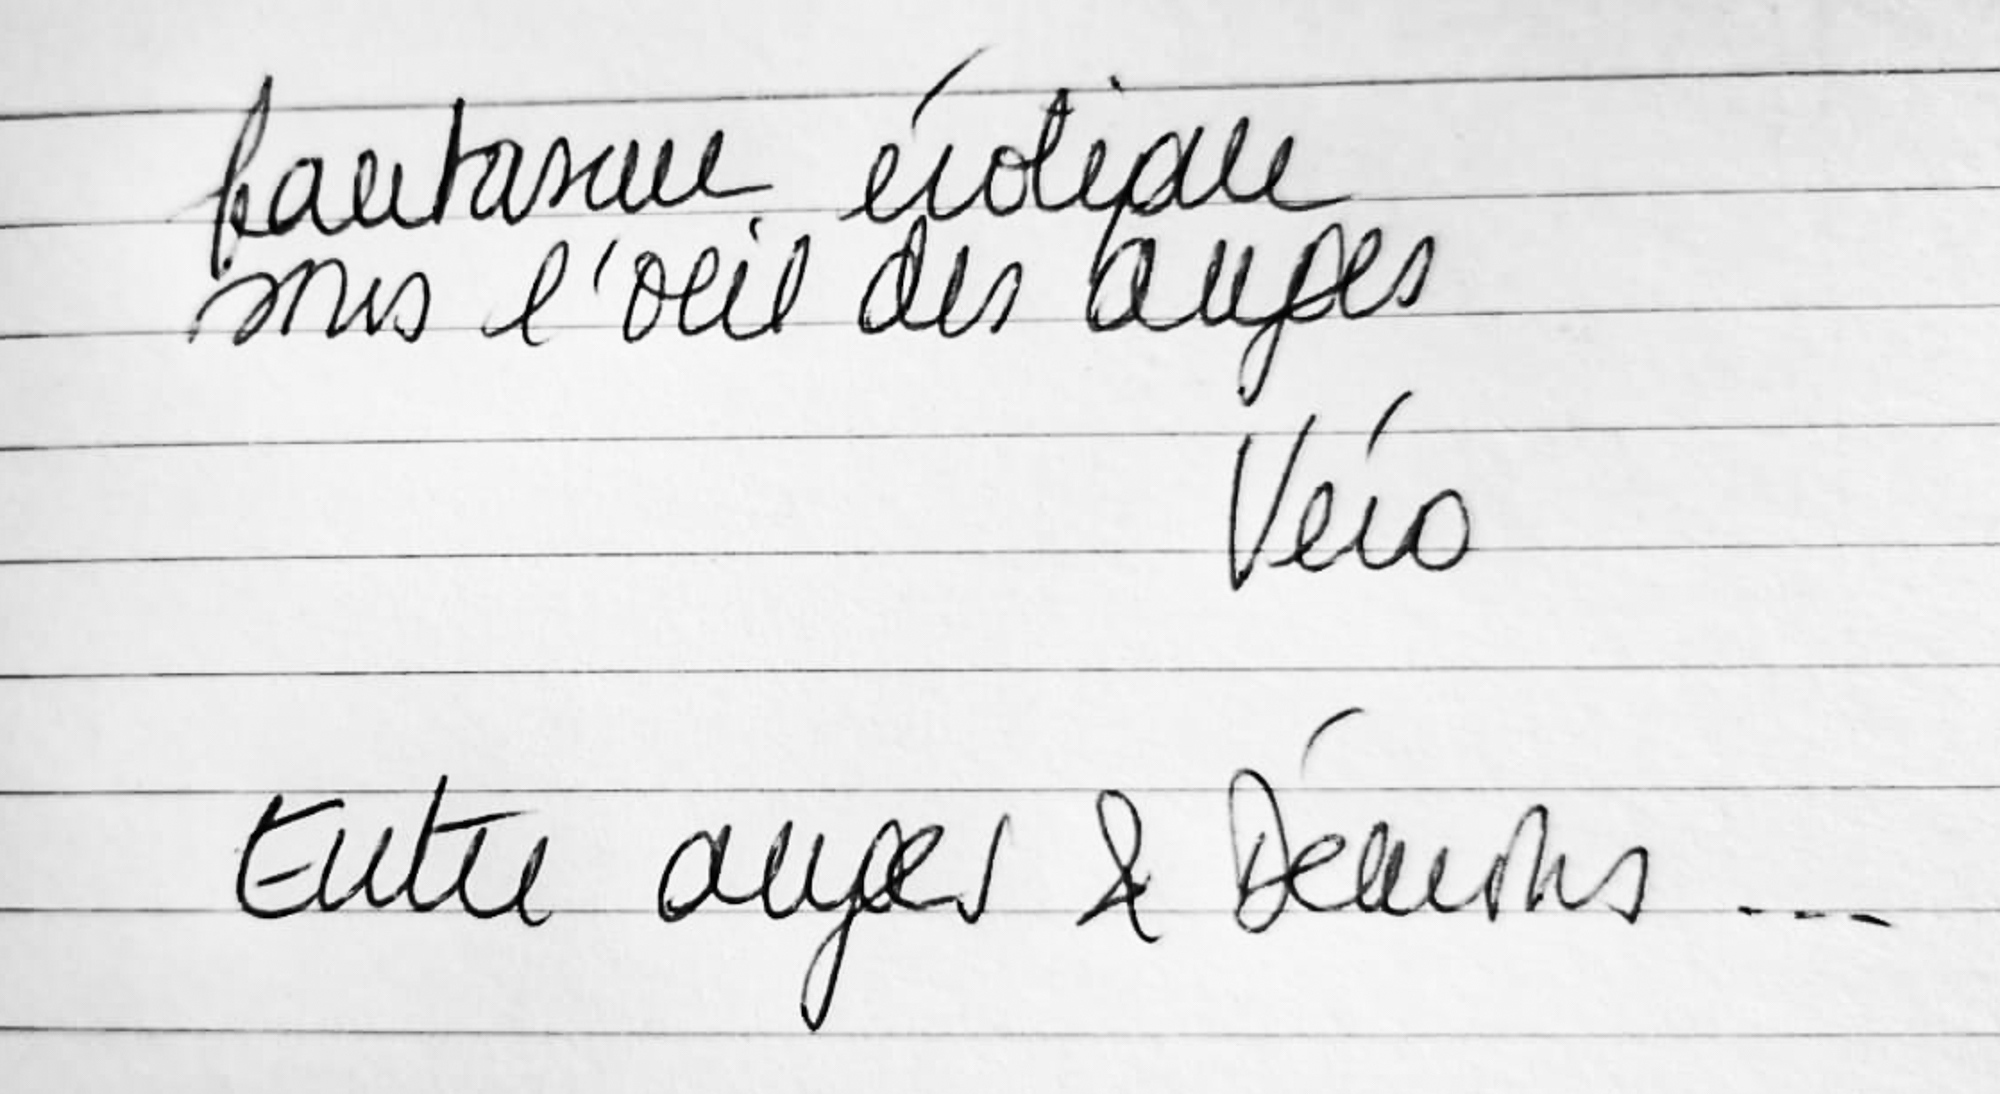 fantasme érotique
sous l'oeil des anges
Véro
Entre anges & Démons ...